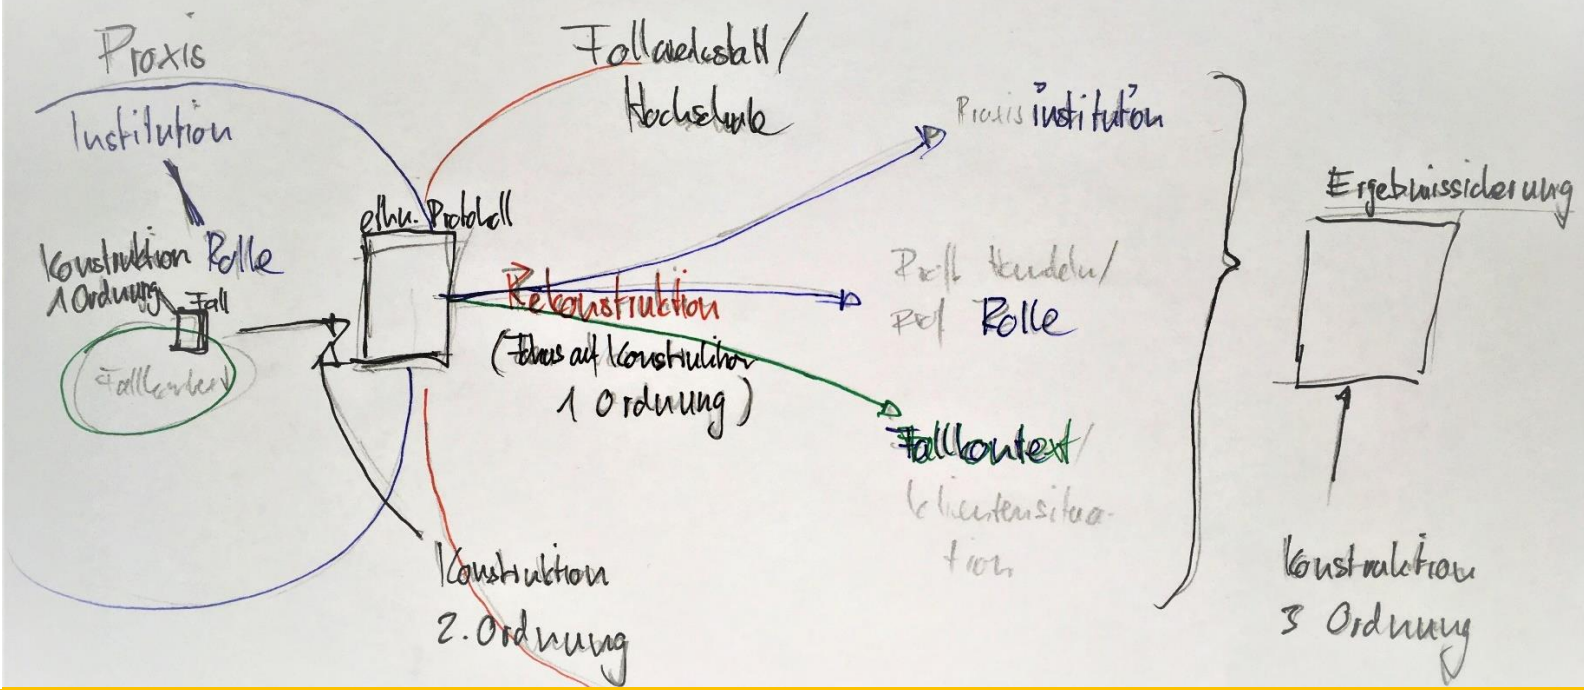 Praxis
Institution
Konstruktion
1 Ordnung
Rolle
Fall
Fallkontext
ethn. Protokoll
Fallwerkstatt/
Hochschule
Rekonstruktion
(Fokus auf Konstruktion
1 Ordnung)
Konstruktion
2. Ordnung
Praxisinstitution
Prof. Handeln/
Prof Rolle
Fallkontext/
Klientensitua-
tion
Ergebnissicherung
Konstruktion
3 Ordnung